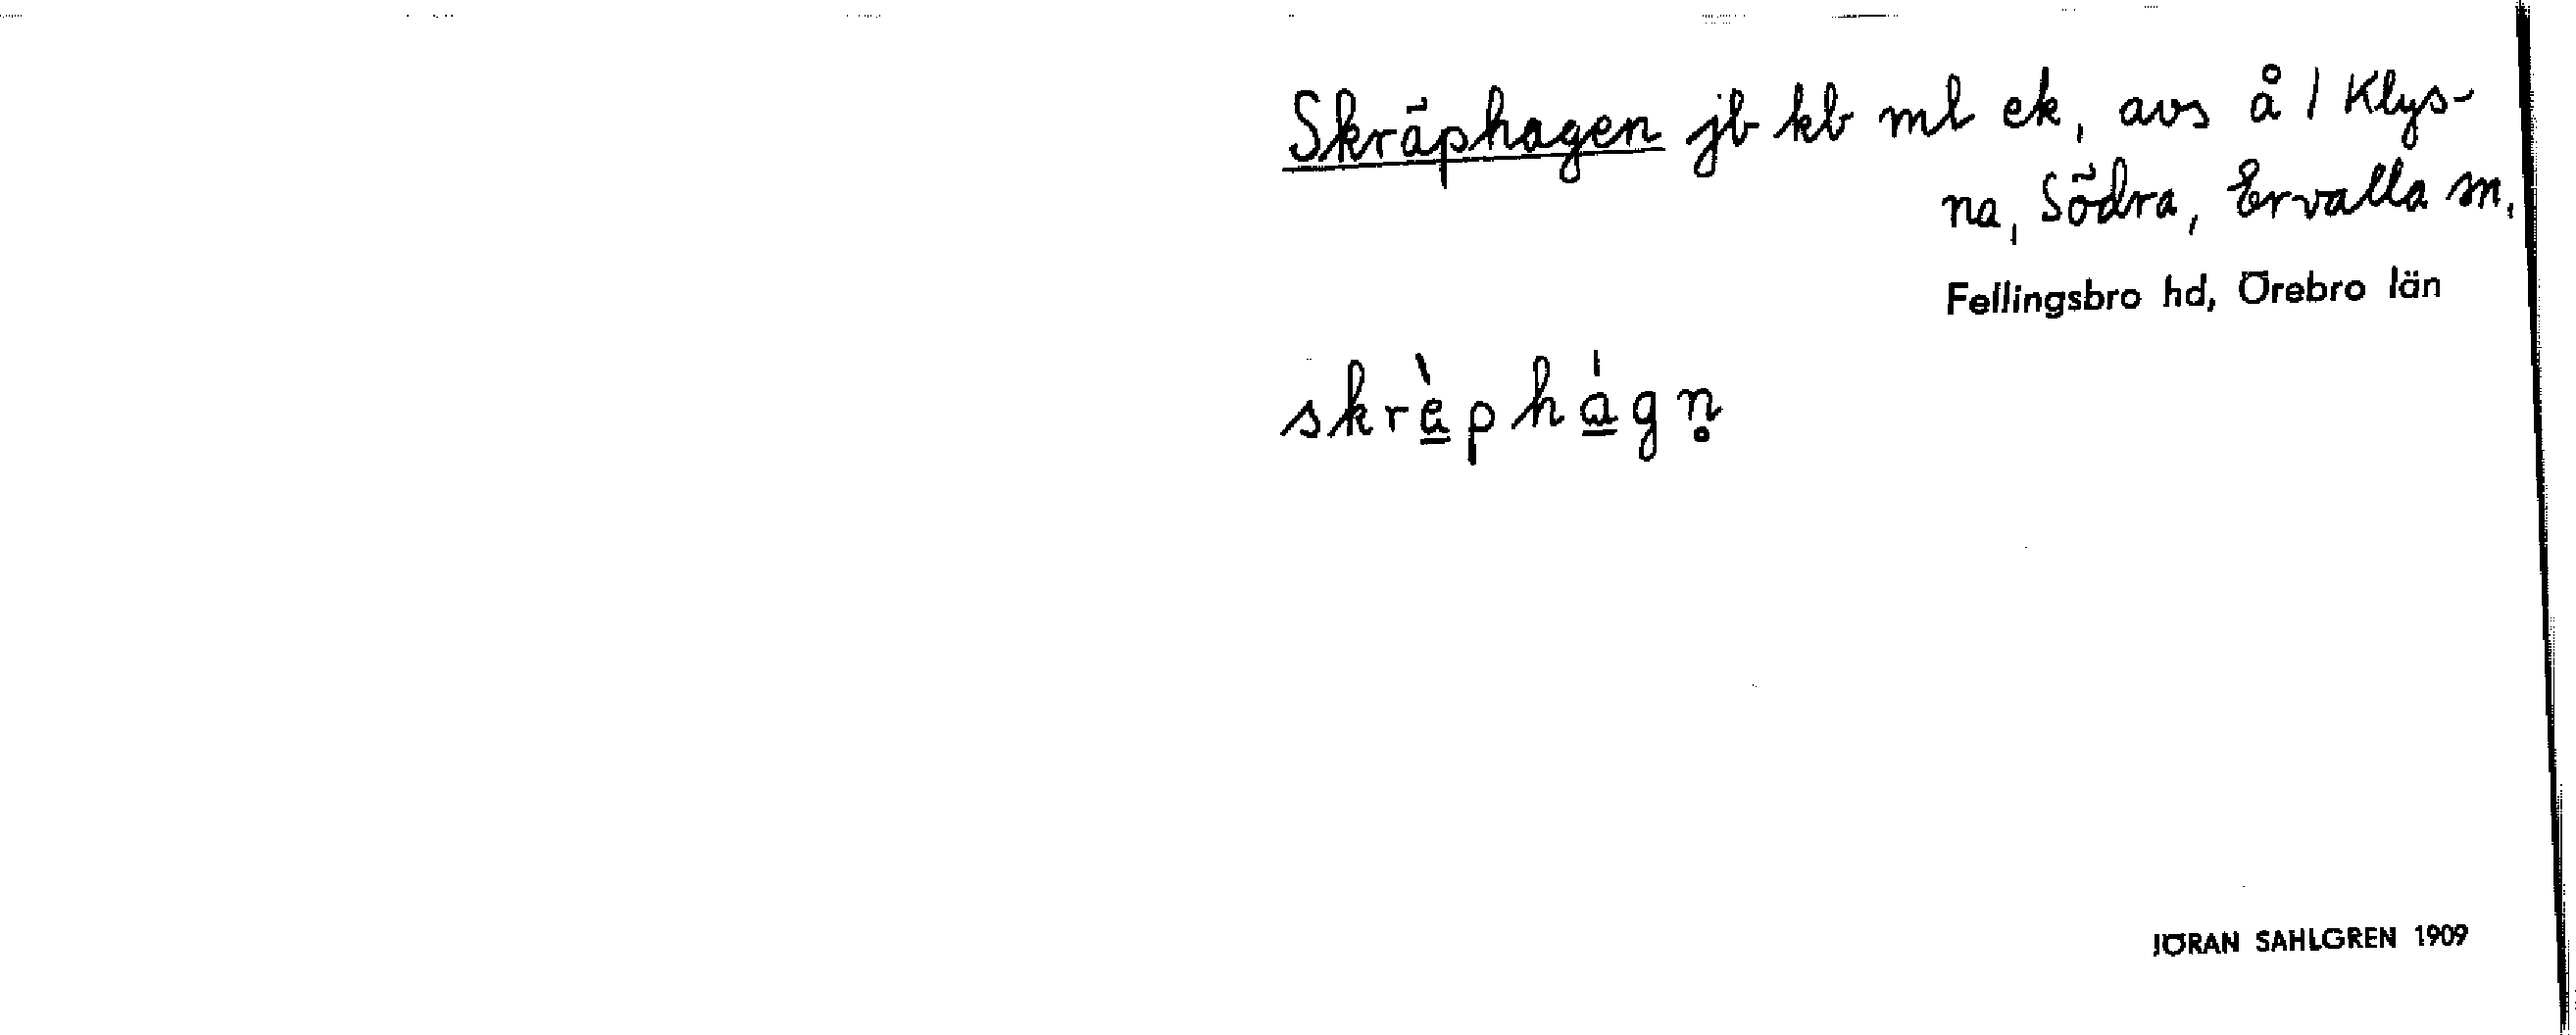 Skräphagen jb kb ml ek, avs å / Klys-
na, Södra, Ervalla sn,
Fellingsbro hd, Örebro län
skrä̀phágn̥
JÖRAN SAHLGREN 1909